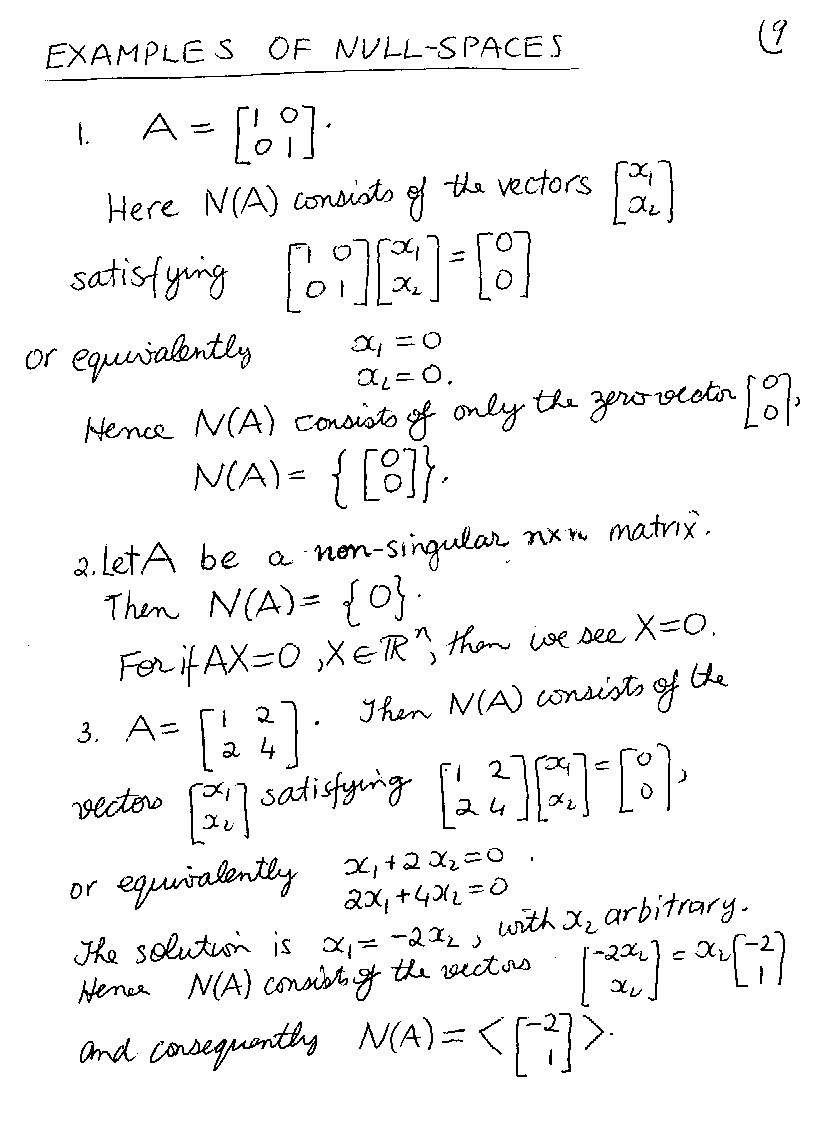 (9
EXAMPLES OF NULL-SPACES
1. A = [1 0; 0 1].
Here N(A) consists of the vectors [x₁; x₂]
satisfying [1 0; 0 1][x₁; x₂] = [0; 0]
or equivalently x₁ = 0
x₂ = 0.
Hence N(A) consists of only the zero vector [0; 0],
N(A) = {[0; 0]}.
2. Let A be a non-singular n×n matrix.
Then N(A) = {0}.
For if AX=0, X∈ℝⁿ, then we see X=0.
3. A = [1 2; 2 4]. Then N(A) consists of the
vectors [x₁; x₂] satisfying [1 2; 2 4][x₁; x₂] = [0; 0],
or equivalently x₁+2x₂=0.
2x₁+4x₂=0
The solution is x₁ = -2x₂, with x₂ arbitrary.
Hence N(A) consists of the vectors [-2x₂; x₂] = x₂[-2; 1]
and consequently N(A) = <[-2; 1]>.